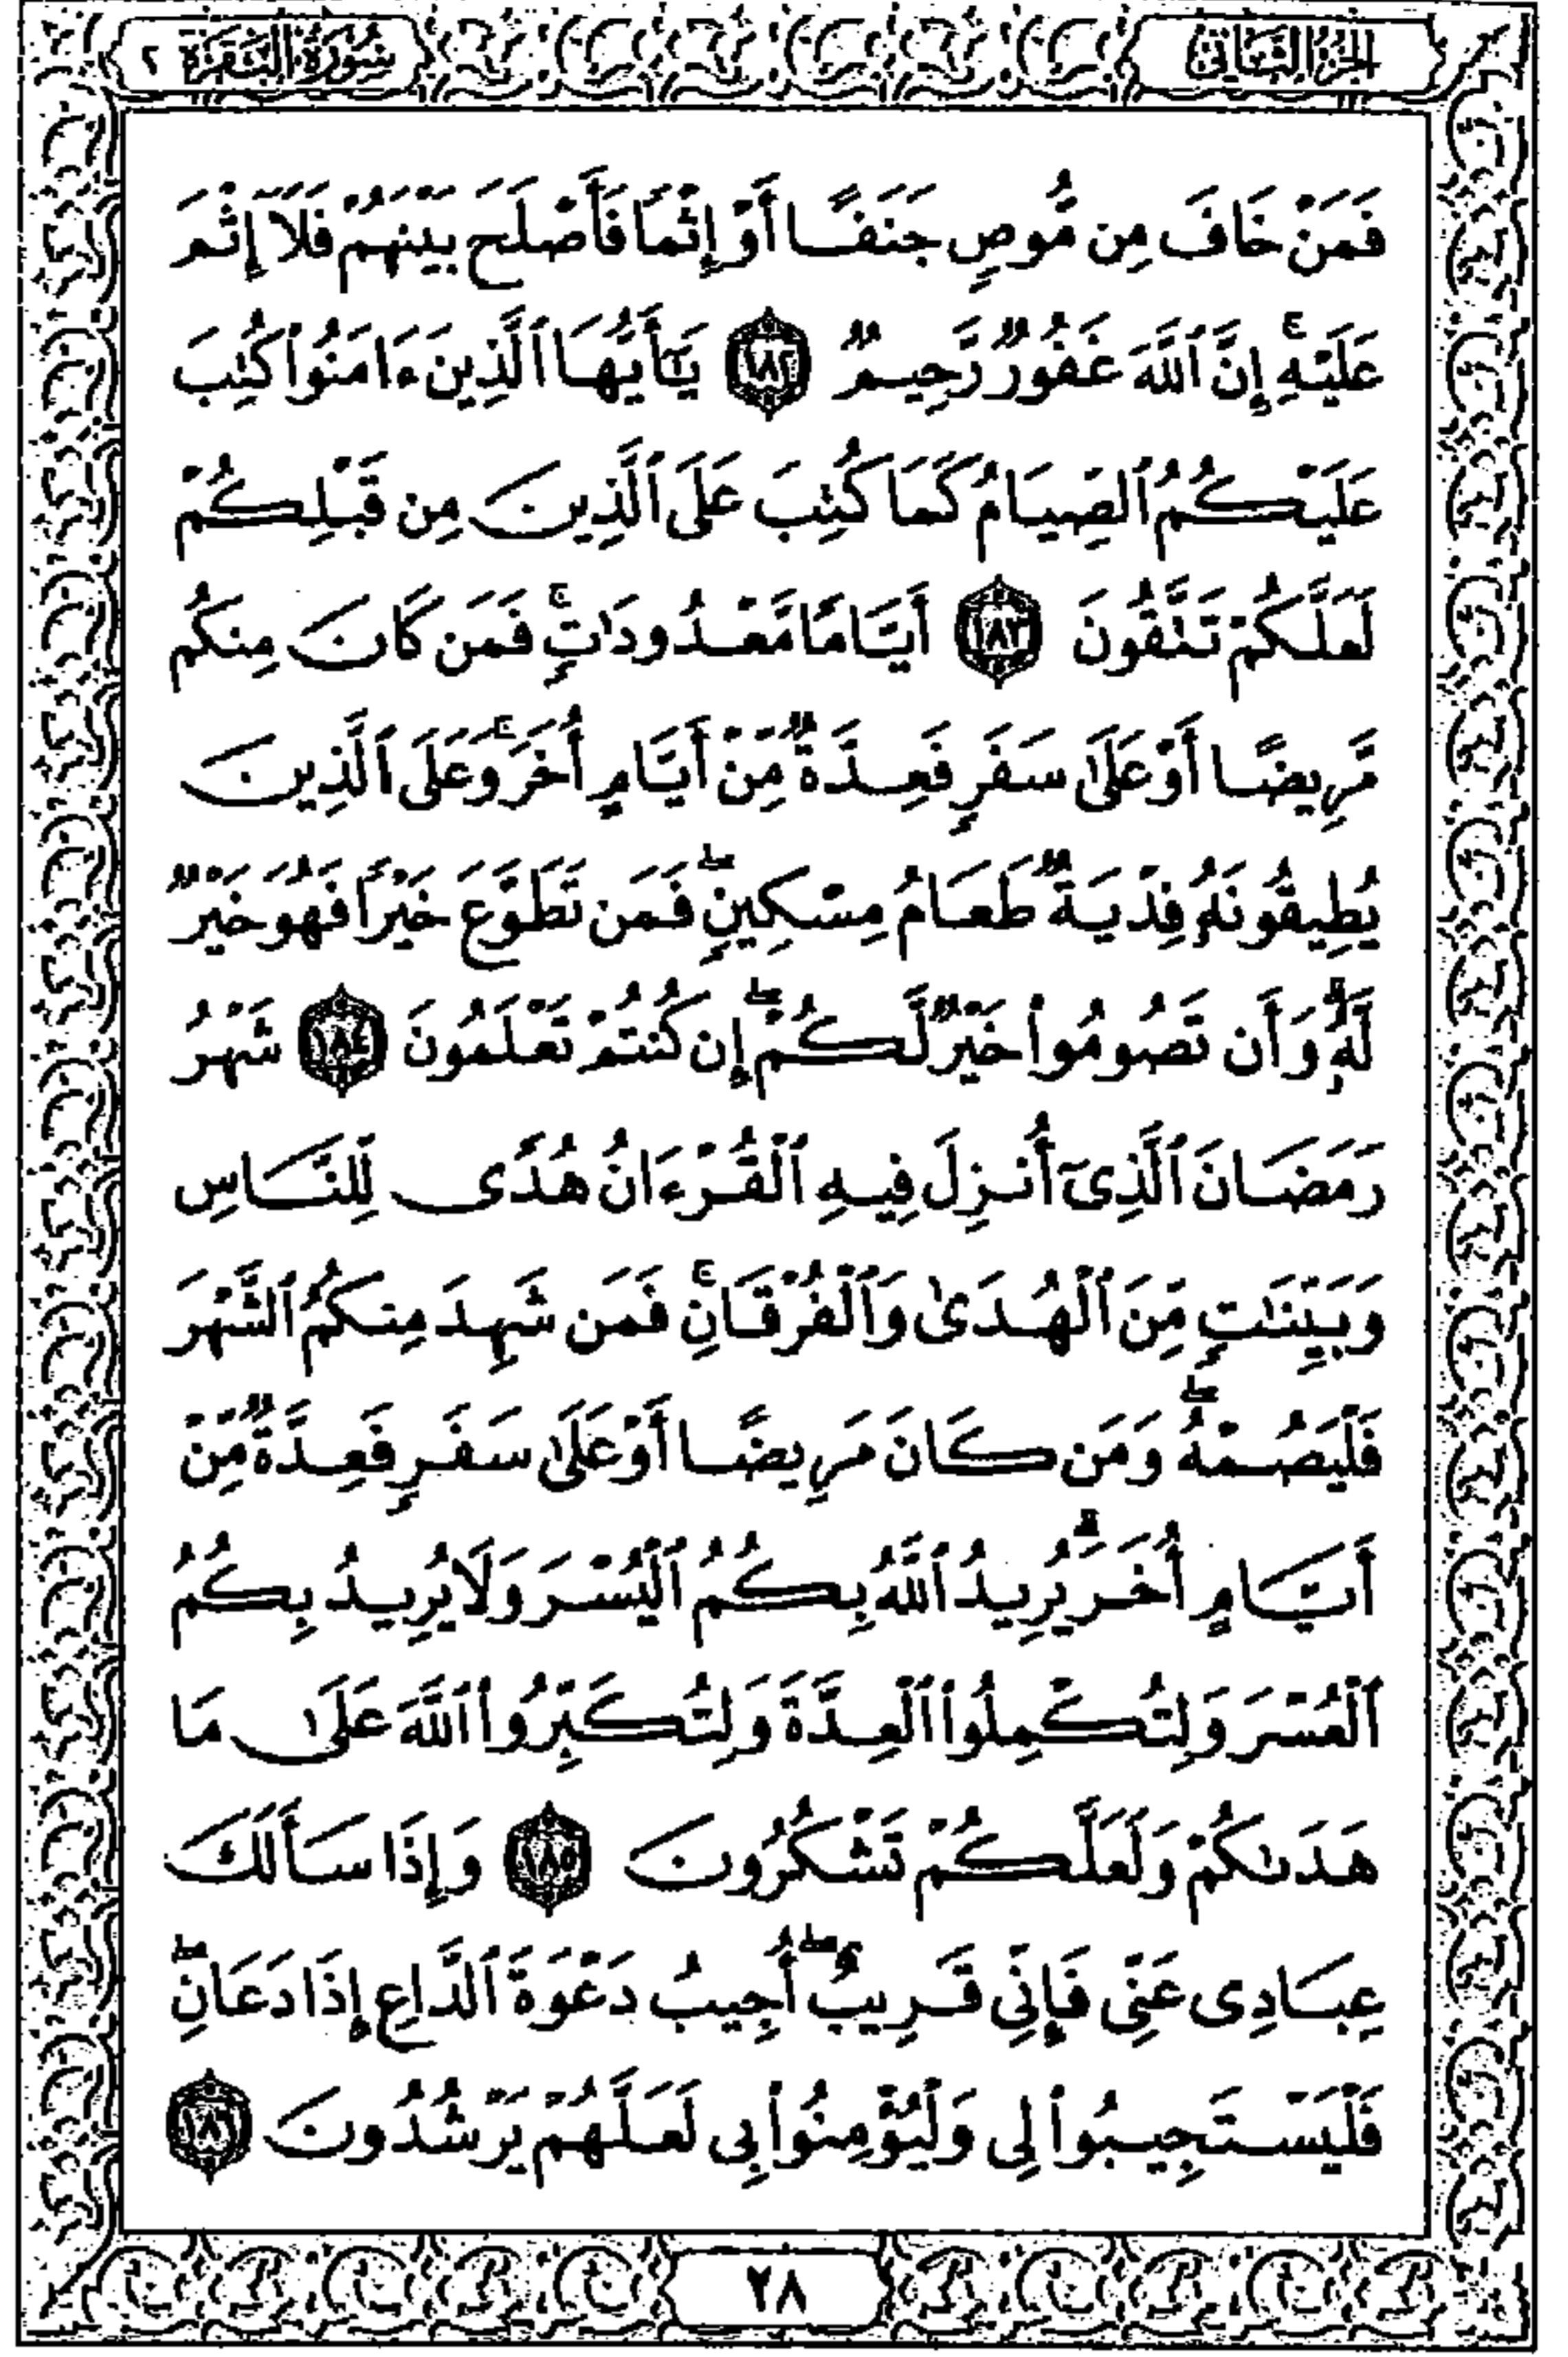 الجزء الثاني
سورة البقرة ٢
فَمَنْ خَافَ مِن مُّوصٍ جَنَفًا أَوْ إِثْمًا فَأَصْلَحَ بَيْنَهُمْ فَلَآ إِثْمَ
عَلَيْهِ ۚ إِنَّ ٱللَّهَ غَفُورٌ رَّحِيمٌ ١٨٢ يَـٰٓأَيُّهَا ٱلَّذِينَ ءَامَنُوا۟ كُتِبَ
عَلَيْكُمُ ٱلصِّيَامُ كَمَا كُتِبَ عَلَى ٱلَّذِينَ مِن قَبْلِكُمْ
لَعَلَّكُمْ تَتَّقُونَ ١٨٣ أَيَّامًا مَّعْدُودَٰتٍ ۚ فَمَن كَانَ مِنكُم
مَّرِيضًا أَوْ عَلَىٰ سَفَرٍ فَعِدَّةٌ مِّنْ أَيَّامٍ أُخَرَ ۚ وَعَلَى ٱلَّذِينَ
يُطِيقُونَهُۥ فِدْيَةٌ طَعَامُ مِسْكِينٍ ۖ فَمَن تَطَوَّعَ خَيْرًا فَهُوَ خَيْرٌ
لَّهُۥ ۚ وَأَن تَصُومُوا۟ خَيْرٌ لَّكُمْ ۖ إِن كُنتُمْ تَعْلَمُونَ ١٨٤ شَهْرُ
رَمَضَانَ ٱلَّذِىٓ أُنزِلَ فِيهِ ٱلْقُرْءَانُ هُدًى لِّلنَّاسِ
وَبَيِّنَـٰتٍ مِّنَ ٱلْهُدَىٰ وَٱلْفُرْقَانِ ۚ فَمَن شَهِدَ مِنكُمُ ٱلشَّهْرَ
فَلْيَصُمْهُ ۖ وَمَن كَانَ مَرِيضًا أَوْ عَلَىٰ سَفَرٍ فَعِدَّةٌ مِّنْ
أَيَّامٍ أُخَرَ ۗ يُرِيدُ ٱللَّهُ بِكُمُ ٱلْيُسْرَ وَلَا يُرِيدُ بِكُمُ
ٱلْعُسْرَ وَلِتُكْمِلُوا۟ ٱلْعِدَّةَ وَلِتُكَبِّرُوا۟ ٱللَّهَ عَلَىٰ مَا
هَدَىٰكُمْ وَلَعَلَّكُمْ تَشْكُرُونَ ١٨٥ وَإِذَا سَأَلَكَ
عِبَادِى عَنِّى فَإِنِّى قَرِيبٌ ۖ أُجِيبُ دَعْوَةَ ٱلدَّاعِ إِذَا دَعَانِ ۖ
فَلْيَسْتَجِيبُوا۟ لِى وَلْيُؤْمِنُوا۟ بِى لَعَلَّهُمْ يَرْشُدُونَ ١٨٦
٢٨